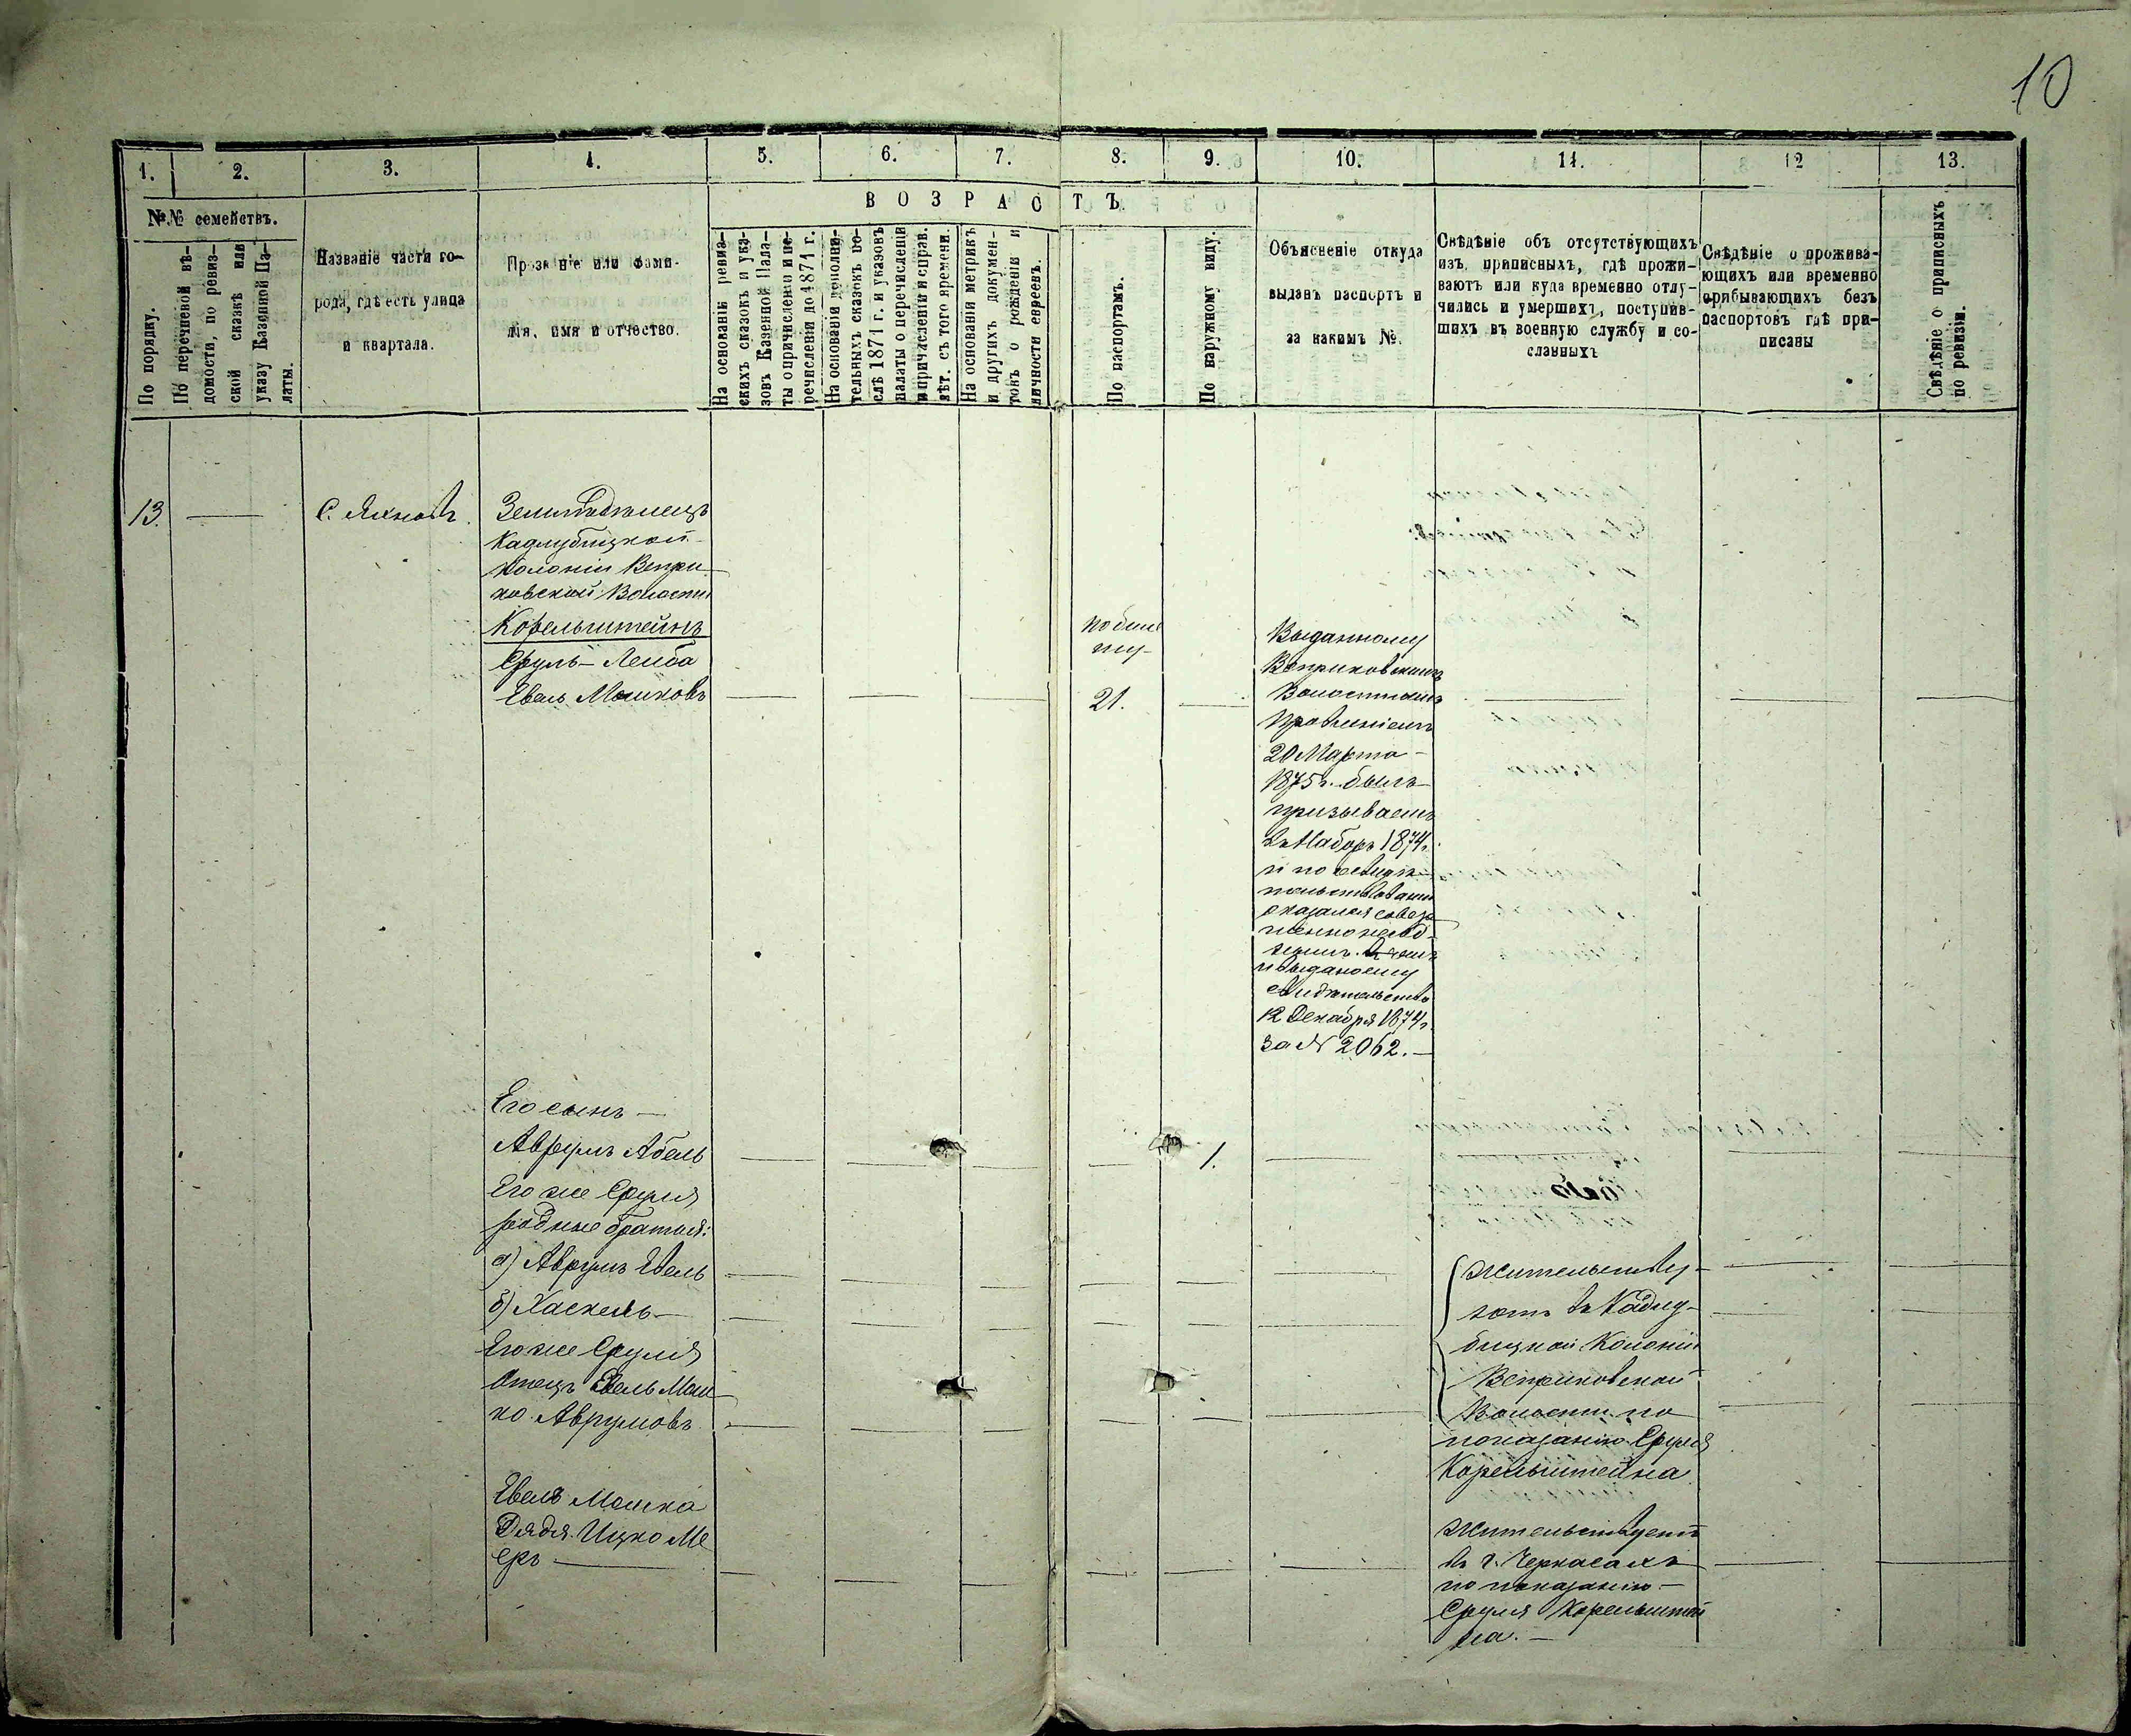 10
1.
2.
3.
4.
5.
6.
7.
8.
9.
10.
11.
12
13.
№№ семействъ.
ВОЗРАСТЪ.
По порядку.
По перечневой вѣ-
домости, по ревиз-
ской сказкѣ или
указу Казенной Па-
латы.
Названіе части го-
рода, гдѣ есть улица
и квартала.
Прозв ніе или фами-
лія, имя и отчество.
На основаніи ревиз-
скихъ сказокъ и ука-
зовъ Казенной Пала-
ты о причисленіи и пе-
речисленіи до 1871 г.
На основаніи дополни-
тельныхъ сказокъ по-
слѣ 1871 г. и указовъ
палаты о перечисленіи
и причисленіи и справ.
лѣт. съ того времени.
На основаніи метрикъ
и другихъ докумен-
товъ о рожденіи и
личности евреевъ.
По паспортамъ.
По наружному виду.
Объясненіе откуда
выданъ паспортъ и
за какимъ №.
Свѣдѣніе объ отсутствующихъ
изъ приписныхъ, гдѣ прожи-
ваютъ или куда временно отлу-
чились и умершихъ, поступив-
шихъ въ военную службу и со-
сланныхъ
Свѣдѣніе о прожива-
ющихъ или временно
прибывающихъ безъ
паспортовъ гдѣ при-
писаны
Свѣдѣніе о приписныхъ
по ревизіи.
13.
С.
Земледѣлецъ
Кадлубицкой
колоніи Вепри-
ковской Волости
Корельштейнъ
Сруль-Лейба
Евель Мошковъ
по биле
ту
21.
Выданному
Веприковскимъ
Волостнымъ
Правленіемъ
20 Марта
1875 г. былъ
призываемъ
въ Наборъ 1874 г.
и по свидѣ-
тельствованіи
оказался совер
шенно негод-
нымъ
и выданому
Свидѣтельству
12 Декабря 1874 г.
за № 2062.
Его сынъ
Аврумъ Абель
1.
Его же Сруля
родные братья:
а) Аврумъ Евель
б) Хаскель
Его же Сруля
Отецъ Евель Мош
ко Аврумовъ
Жительству-
ютъ въ Кадлу-
бицкой Колоніи
Веприковской
Волости по
показанію Сруля
Корельштейна
Евеля Мошка
Дядя Ицко Ме
еръ
Жительствуетъ
въ г. Черкасахъ
по показанію
Сруля Корельштей
на.